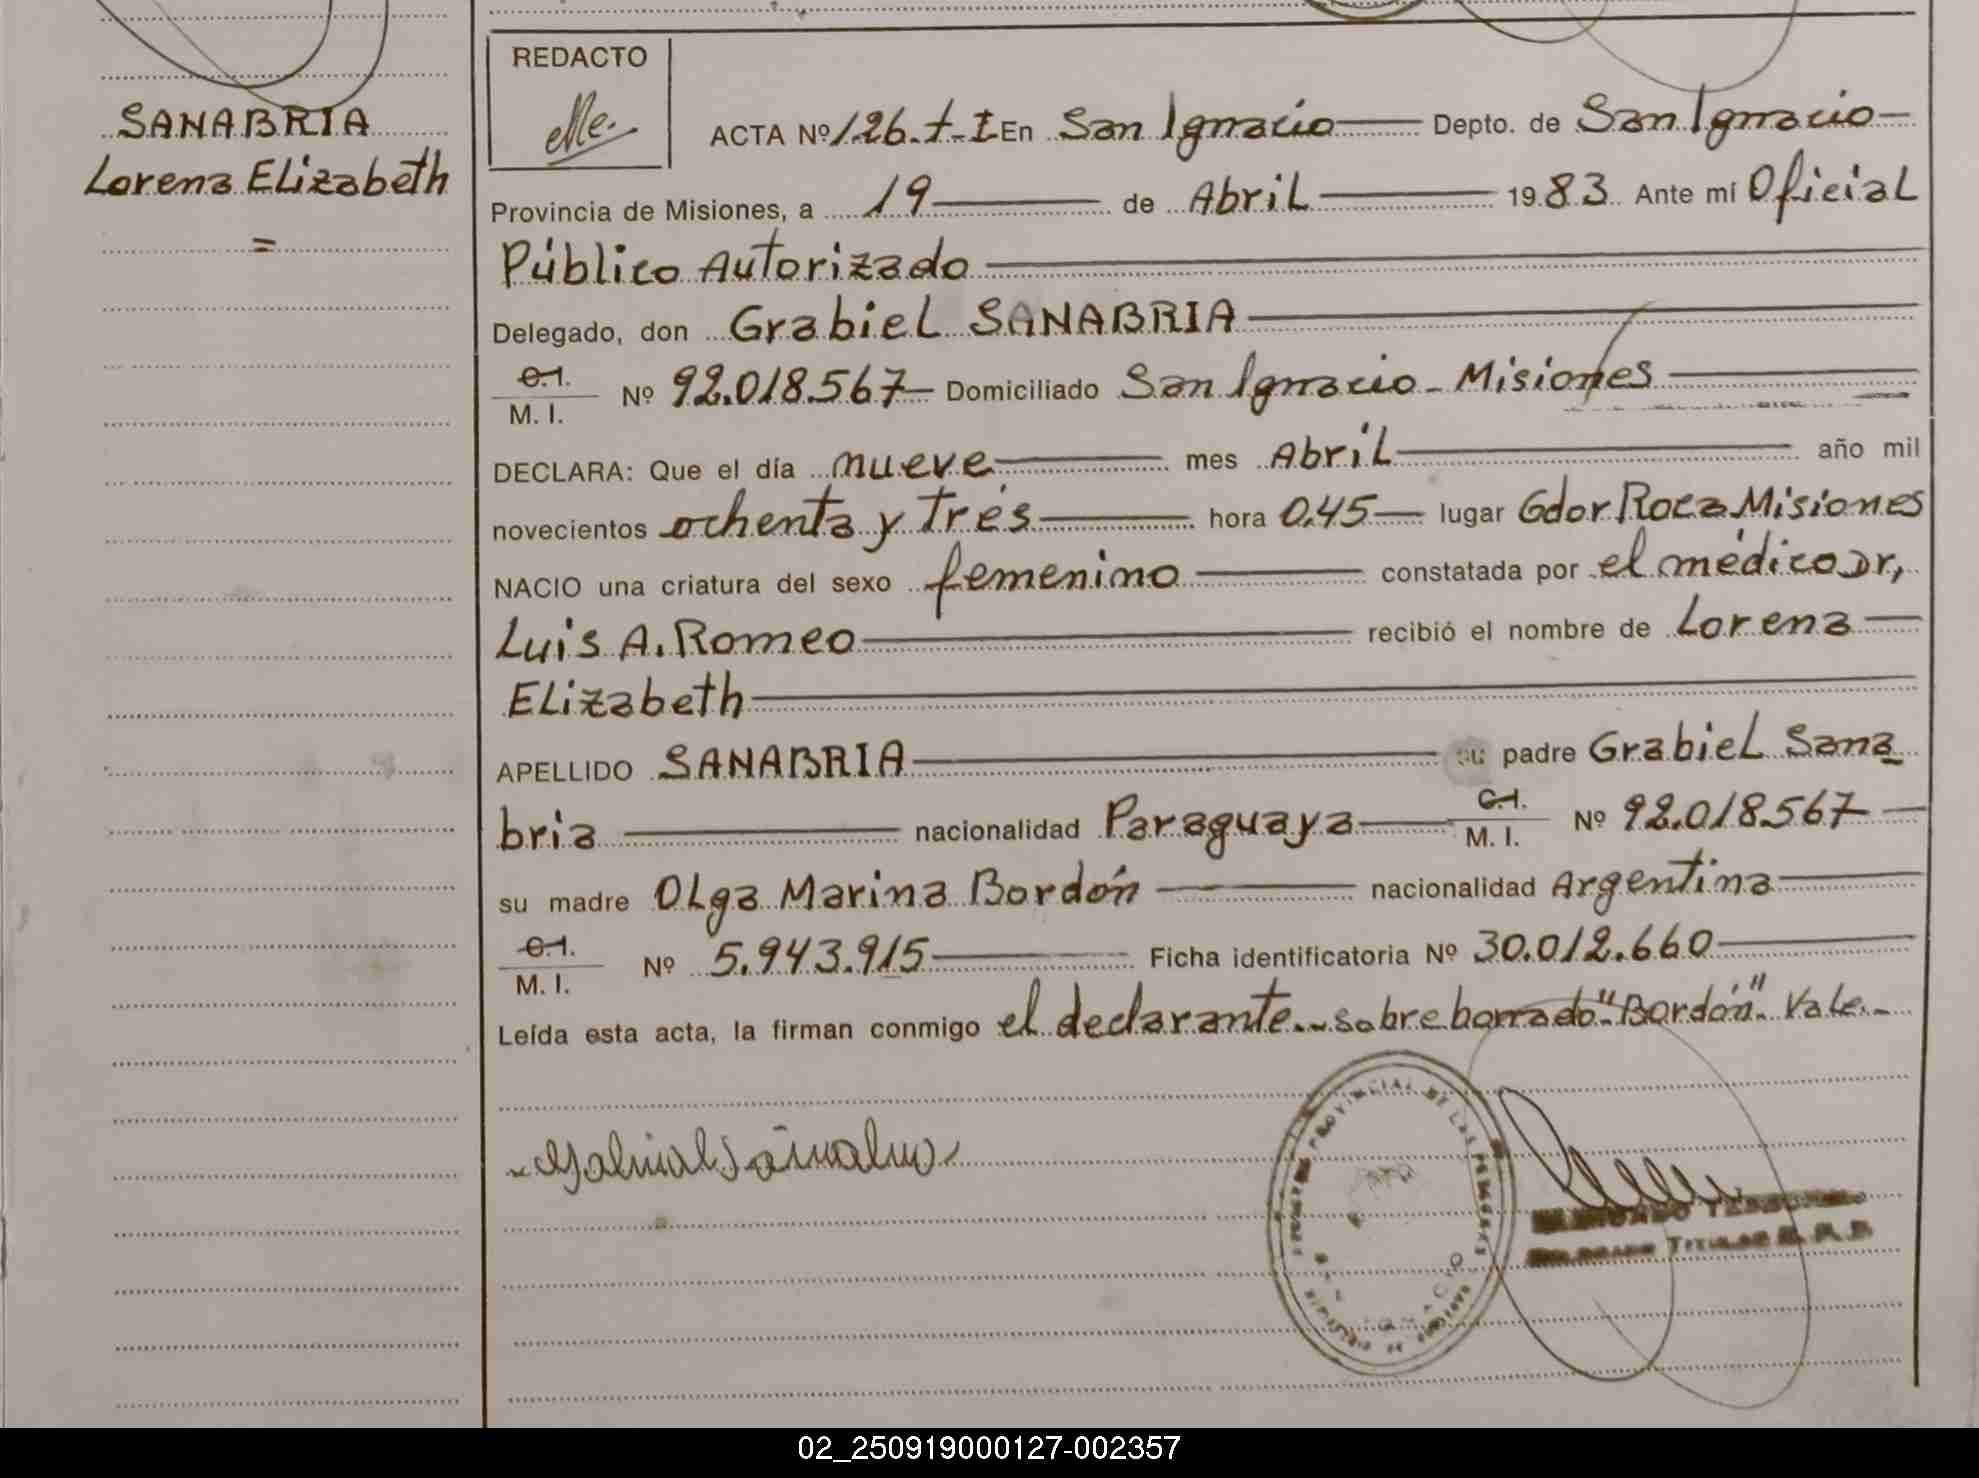 SANABRIA
Lorena Elizabeth
=
REDACTO
ACTA Nº 126.t-I En San Ignacio Depto. de San Ignacio
Provincia de Misiones, a 19 de Abril 1983. Ante mí Oficial
Público Autorizado
Delegado, don Grabiel SANABRIA
C.I.
M. I. Nº 92.018.567 Domiciliado San Ignacio - Misiones
DECLARA: Que el día nueve mes Abril año mil
novecientos ochenta y Trés hora 0.45 lugar Gdor Roca Misiones
NACIO una criatura del sexo femenino constatada por el médico Dr,
Luis A. Romeo recibió el nombre de Lorena
Elizabeth
APELLIDO SANABRIA su padre Grabiel Sana
bria nacionalidad Paraguaya C.I. M. I. Nº 92.018.567
su madre Olga Marina Bordón nacionalidad Argentina
C.I.
M. I. Nº 5.943.915 Ficha identificatoria Nº 30.012.660
Leída esta acta, la firman conmigo el declarante.- sobre borrado "Bordón". Vale.-
PROVINCIAL DE LAS PERSONAS
TITULAR
02_250919000127-002357